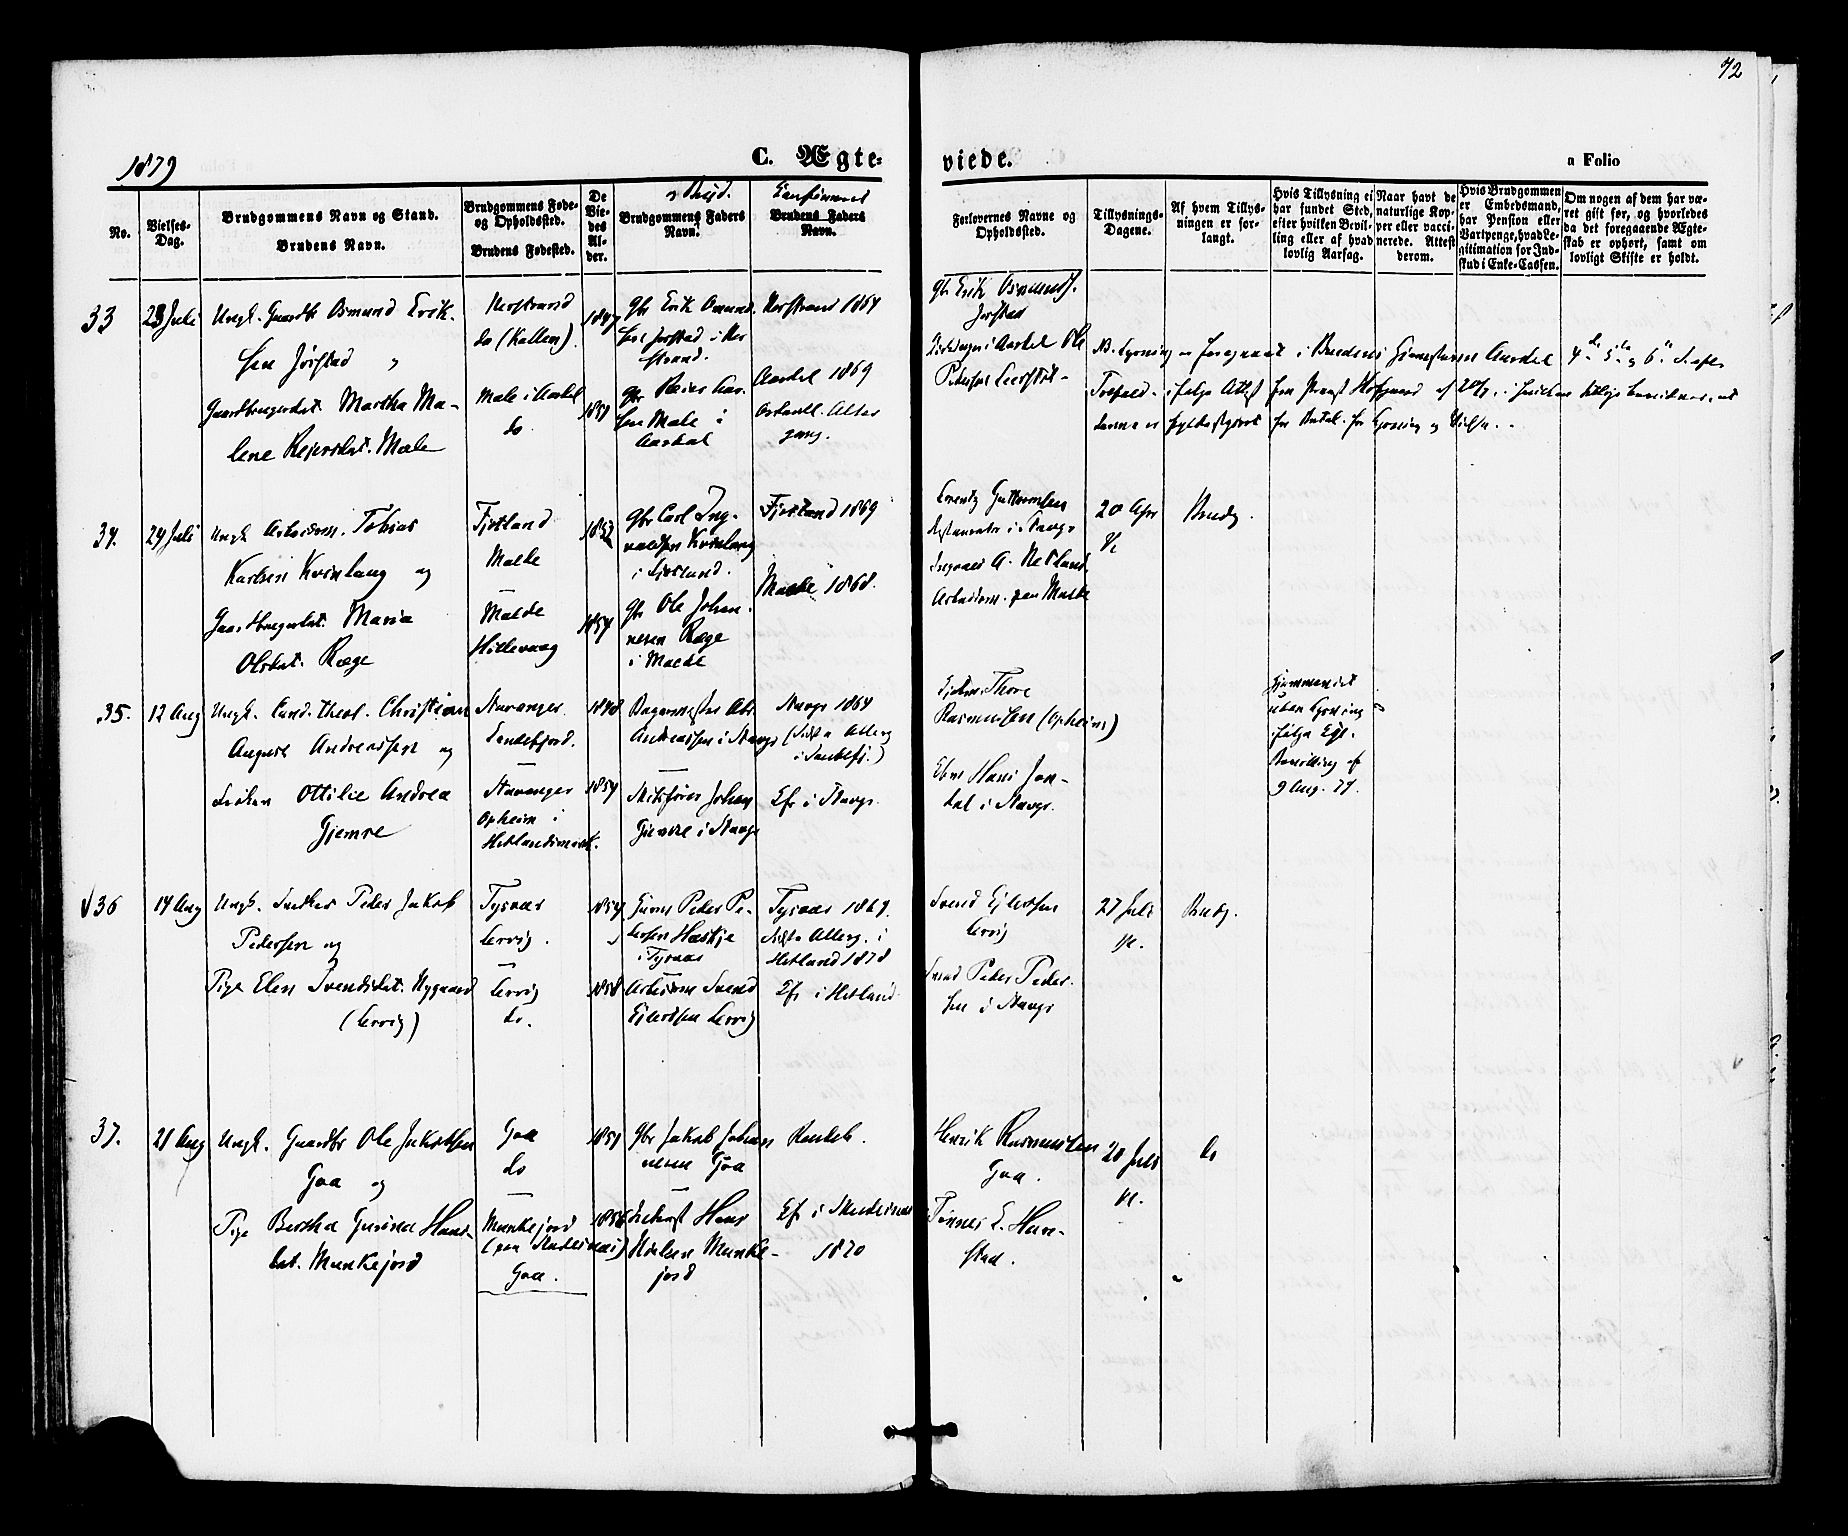 72
1879
C. Ægte-
viede.
a Folio
No.
Vielses-
Dag.
Brudgommens Navn og Stand.
Brudens Navn.
Brudgommens Føde-
og Opholdssted.
Brudens Fødested.
De
Vie-
des
Al-
der.
og Brud.
Brudgommens Faders
Navn.
Confirmeret
Brudens Faders
Navn.
Forlovernes Navne og
Opholdssted.
Tillysnings-
Dagene.
Af hvem Tillys-
ningen er for-
langt.
Hvis Tillysning ei
har fundet Sted,
efter hvilken Bevil-
ling eller af hvad
lovlig Aarsag.
Naar havt de
naturlige Kop-
per eller vacci-
nerede. Attest
derom.
Hvis Brudgommen
er Embedsmand,
har Pension eller
Vartpenge, hvad Le-
gitimation for Ind-
skud i Enke-Cassen.
Om nogen af dem har væ-
ret gift før, og hvorledes
da det foregaaende Ægte-
skab er ophørt, samt om
lovligt Skifte er holdt.
33
23 Juli
Ungk. Gaardbr Osmund Erik-
sen Jørstad
Gaardbrugerdat. Martha Ma-
lene Reiersdat. Male
Nerstrand
do (Kallen).
Male i Aardal
do.
1847
1851
Gbr Erik Osmund-
sen Jørstad i Ner
strand.
Gbr Reier Lar-
sen Male i
Aardal
Nerstrand 1864
Aardal 1869
Gbr Erik Osmunds.
Jørstad
i Aardal Ole
Pedersen
NB. Lysning er foregaaet i Brudens Hjemstavn Aardal 4de 5te og 6te S. efter
Trefold. i følge Attest fra Hofgaard af
for Lysning og Vielse.
34.
24 Juli
Ungk Arbeidsm. Tobias
Karlsen Kvinlaug og
Gaardbrugerdat. Maria
Olsdat. Ræge
Fjotland
Malde
Malde
Hillevaag
1852
1854
Gbr Carl Ing-
valdsen Kvinlaug
i Fjotland.
Gbr Ole Johan-
nesen Ræge
i Malde
Fjotland 1869
Malde 1868.
Lorentz Guttormsen
i Stavgr
Ingvald A. Netland
Arbeidsm. paa Malde
20 Apr
Brudg.
35.
12 Aug
Ungk. Cand. theol. Christian
August Andreassen og
Frøken Ottilie Andrea
Gjemre
Stavanger
Sandefjord.
Stavanger
Opheim i
Hetlandsmark.
1840
1854
Bagermester Abr.
Andreassen i Stavgr
Skibsfører Johan
Gjemre i Stavgr
Stavgr 1864
(Sidste Alterg
i Sandefj.)
Efr i Stavgr.
Thore
Rasmussen (Opheim)
Hans Jon-
dal i Stavgr.
Hjemmeviet
uden Lysning
ifølge Kgl.
Bevilling af
9 Aug. 79.
36
14 Aug
Ungk. Snedker Peder Jakob
Pedersen og
Pige Elen Svendsdat. Nygaard
(Lervig)
Tysvær
Lervig.
Lervig
do.
1854
1858
Peder Pe-
dersen Haskje
i Tysvær
Arbeidsm Svend
Ejlertsen Lervig
Tysvær 1869.
Sidste Alterg. i
Hetland 1878
Efr i Hetland
Svend Ejlertsen
Lervig
Peder Peder-
sen i Stavgr
27 Juli
Brudg.
37.
21 Aug
Ungk. Gaardbr Ole Jakobsen
Goa og
Pige Bertha Gurina Hans-
dat. Munkejord
Goa
do
Munkejord
(paa Skudesnæs)
Goa.
1851
1856
Gbr Jakob Johan-
nesen Goa
Hans
Nielsen Munke-
jord
Randeb.
Efr i Skudesnæs
1870
Henrik Rasmussen
Goa.
Tønnes E. Har-
stad.
20 Juli
do